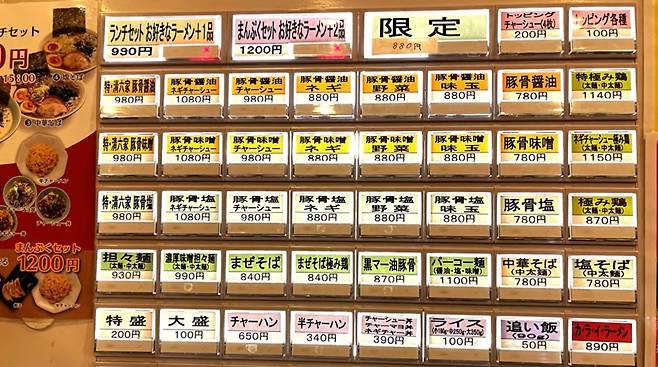 チセット
0円
15:00
④塩そば
③中華そば
まんぷくセット
1200円
ランチセット お好きなラーメン+1品
990円
まんぷくセット お好きなラーメン+2品
1200円
限定
880円
トッピング
チャーシュー(4枚)
200円
トッピング各種
100円
特・清六家 豚骨醤油
980円
豚骨醤油
ネギチャーシュー
1080円
豚骨醤油
チャーシュー
980円
豚骨醤油
ネギ
880円
豚骨醤油
野菜
880円
豚骨醤油
味玉
880円
豚骨醤油
780円
特極み鶏
(太麺・中太麺)
1140円
特・清六家 豚骨味噌
980円
豚骨味噌
ネギチャーシュー
1080円
豚骨味噌
チャーシュー
980円
豚骨味噌
ネギ
880円
豚骨味噌
野菜
880円
豚骨味噌
味玉
880円
豚骨味噌
780円
ネギチャーシュー極み鶏
(太麺・中太麺)
1150円
特・清六家 豚骨塩
980円
豚骨塩
ネギチャーシュー
1080円
豚骨塩
チャーシュー
980円
豚骨塩
ネギ
880円
豚骨塩
野菜
880円
豚骨塩
味玉
880円
豚骨塩
780円
極み鶏
(太麺・中太麺)
870円
担々麺
(太麺・中太麺)
930円
濃厚味噌担々麺
(太麺・中太麺)
990円
まぜそば
840円
まぜそば極み鶏
840円
黒マー油豚骨
870円
パーコー麺
(醤油・塩・味噌)
1100円
中華そば
(中太麺)
780円
塩そば
(中太麺)
780円
特盛
200円
大盛
100円
チャーハン
650円
半チャーハン
340円
チャーシュー丼
チャーマヨ丼
ネギチャー丼
390円
ライス
(小180g・中250g・大350g)
100円
追い飯
(90g)
50円
カ・ラ・イ・ラーメン
890円